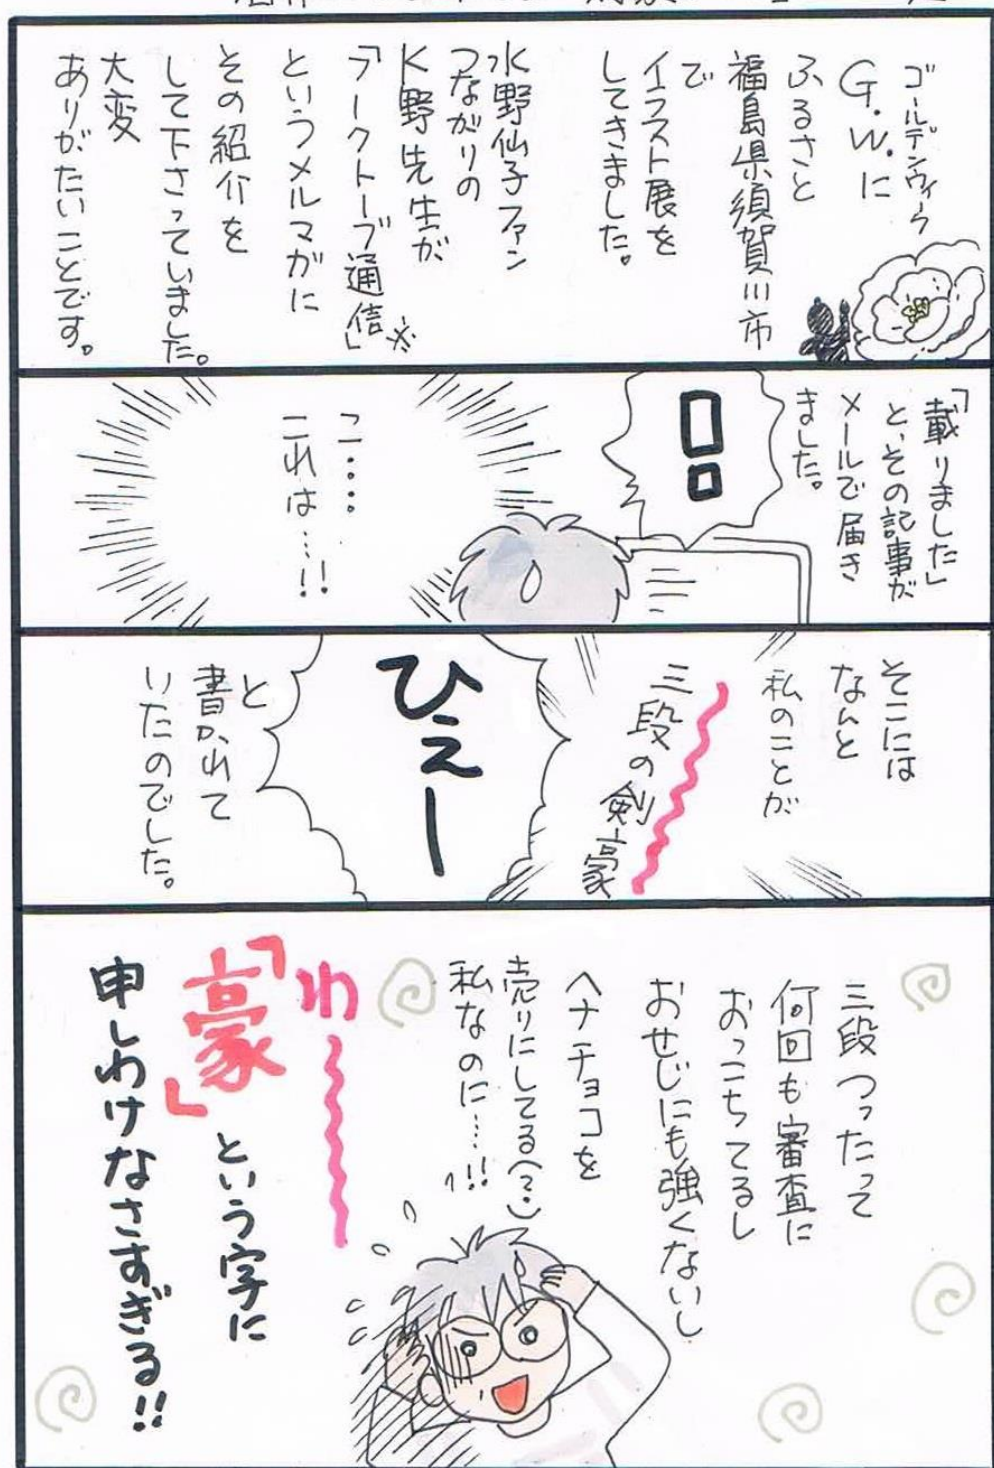 ゴールデンウィーク
G.W.に
ふるさと
福島県須賀川市
で
イラスト展を
してきました。
水野仙子ファン
つながりの
K野先生が
「アークトーブ通信」※
というメルマガに
その紹介を
して下さっていました。
大変
ありがたいことです。
「載りました」
と、その記事が
メールで届き
ました。
!!
こ・・・・
これは…!!
そこには
なんと
私のことが
三段の剣豪
ひえー
と
書かれて
いたのでした。
三段つったって
何回も審査に
おっこちてるし
おせじにも強くないし
ヘナチョコを
売りにしてる(?)
私なのに……!!
わ~
「豪」という字に
申しわけなさすぎる!!